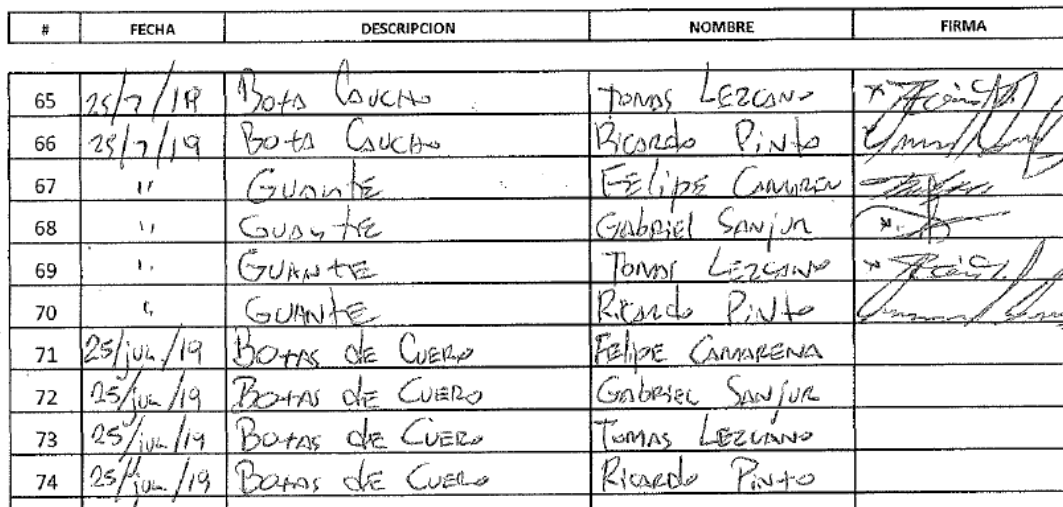 # FECHA DESCRIPCION NOMBRE FIRMA
65 25/7/19 Bota Caucho Tomas Lezcano
66 25/7/19 Bota Caucho Ricardo Pinto
67 " Guante Felipe Camaren
68 " Guante Gabriel Sanjur
69 " Guante Tomas Lezcano
70 " Guante Ricardo Pinto
71 25/jul/19 Botas de Cuero Felipe Camarena
72 25/jul/19 Botas de Cuero Gabriel Sanjur
73 25/jul/19 Botas de Cuero Tomas Lezcano
74 25/jul/19 Botas de Cuero Ricardo Pinto